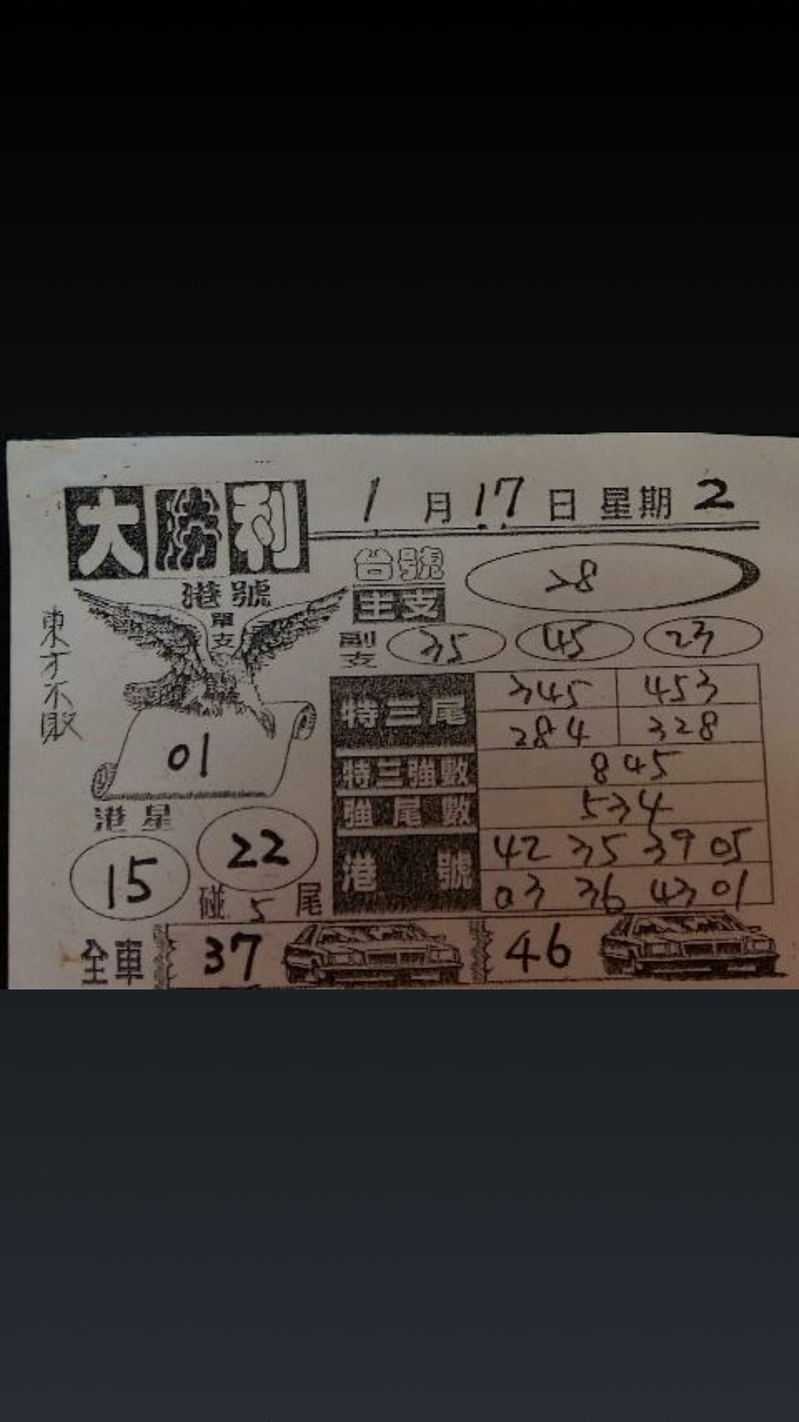 大勝利 1月17日 星期2
港號 單支 01
東方不敗
台號 主支 28
副支 35 45 23
特三尾 345 453
284 328
特三強數 845
強尾數 534
港號 42 35 39 05
03 36 43 01
港星 15 22
碰5尾
全車 37 46